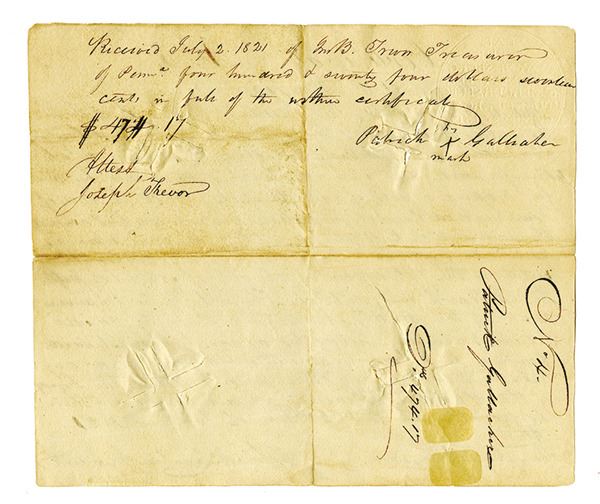 Received July 2. 1821 of Jno B. Trevor Treasurer
of Pennᵃ four hundred & seventy four dollars seventeen
cents in full of the within certificate
$ 474. 17
Patrick his X mark Gallaher
Attest
Joseph Trevor
No 4.
Patrick Gallaher
Drs. 474.17